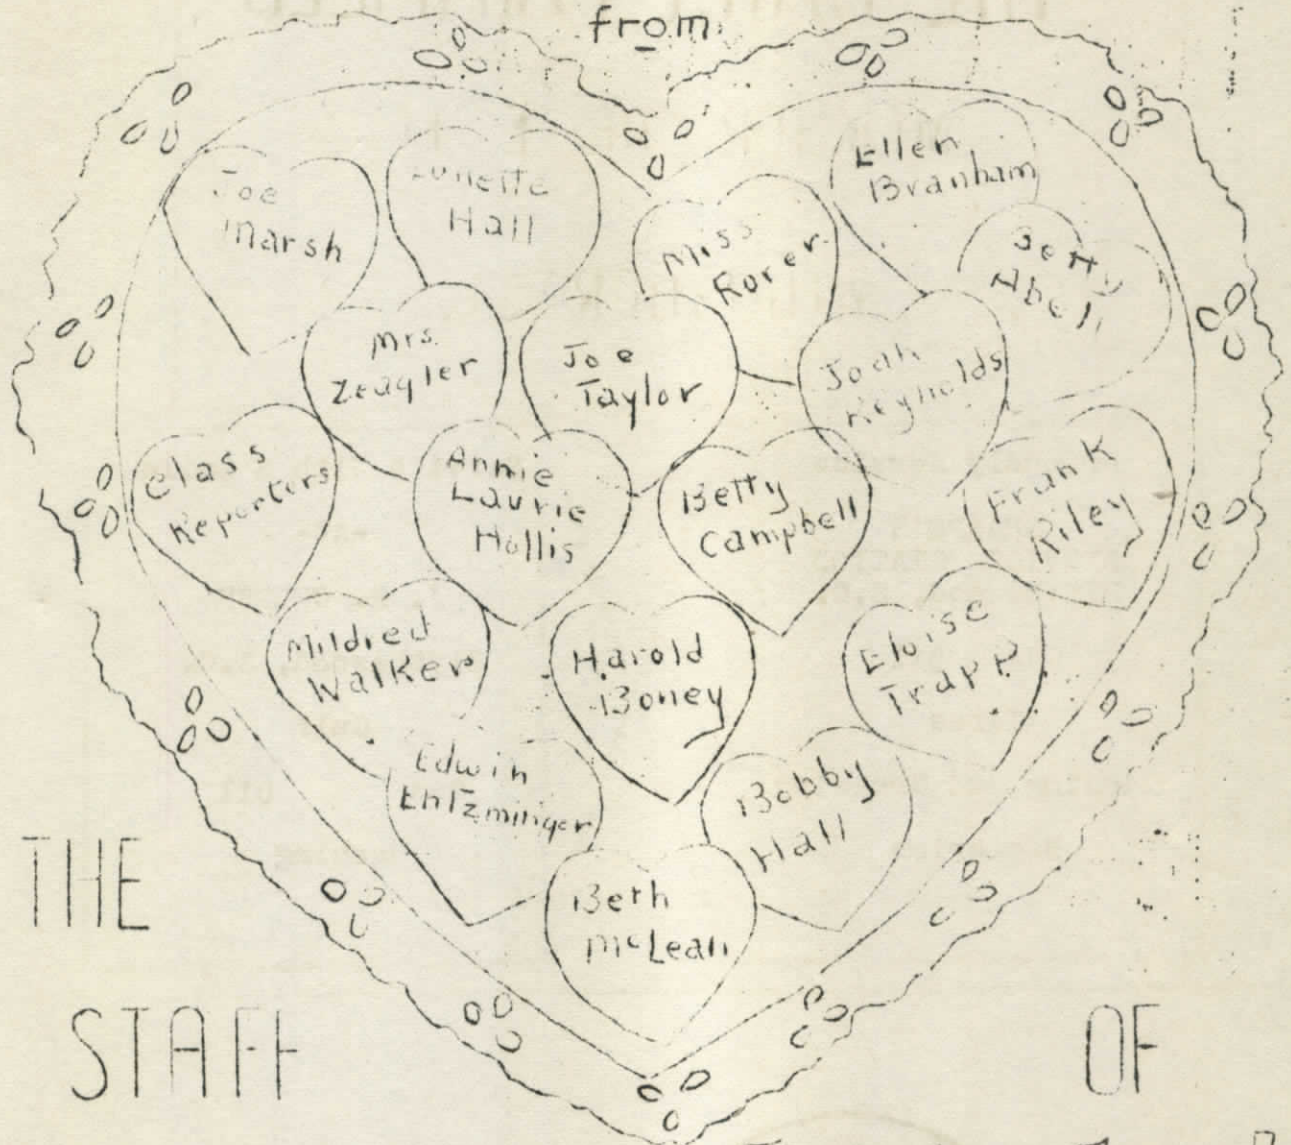 from
Joe
Marsh
Lunette
Hall
Miss
Rorer
Ellen
Branham
Betty
Abell
Mrs.
Zeagler
Joe
Taylor
Joan
Reynolds
Class
Reporters
Annie
Laurie
Hollis
Betty
Campbell
Frank
Riley
Mildred
Walker
Harold
Boney
Eloise
Trapp
Edwin
Entzminger
Bobby
Hall
Beth
McLean
THE
STAFF
OF